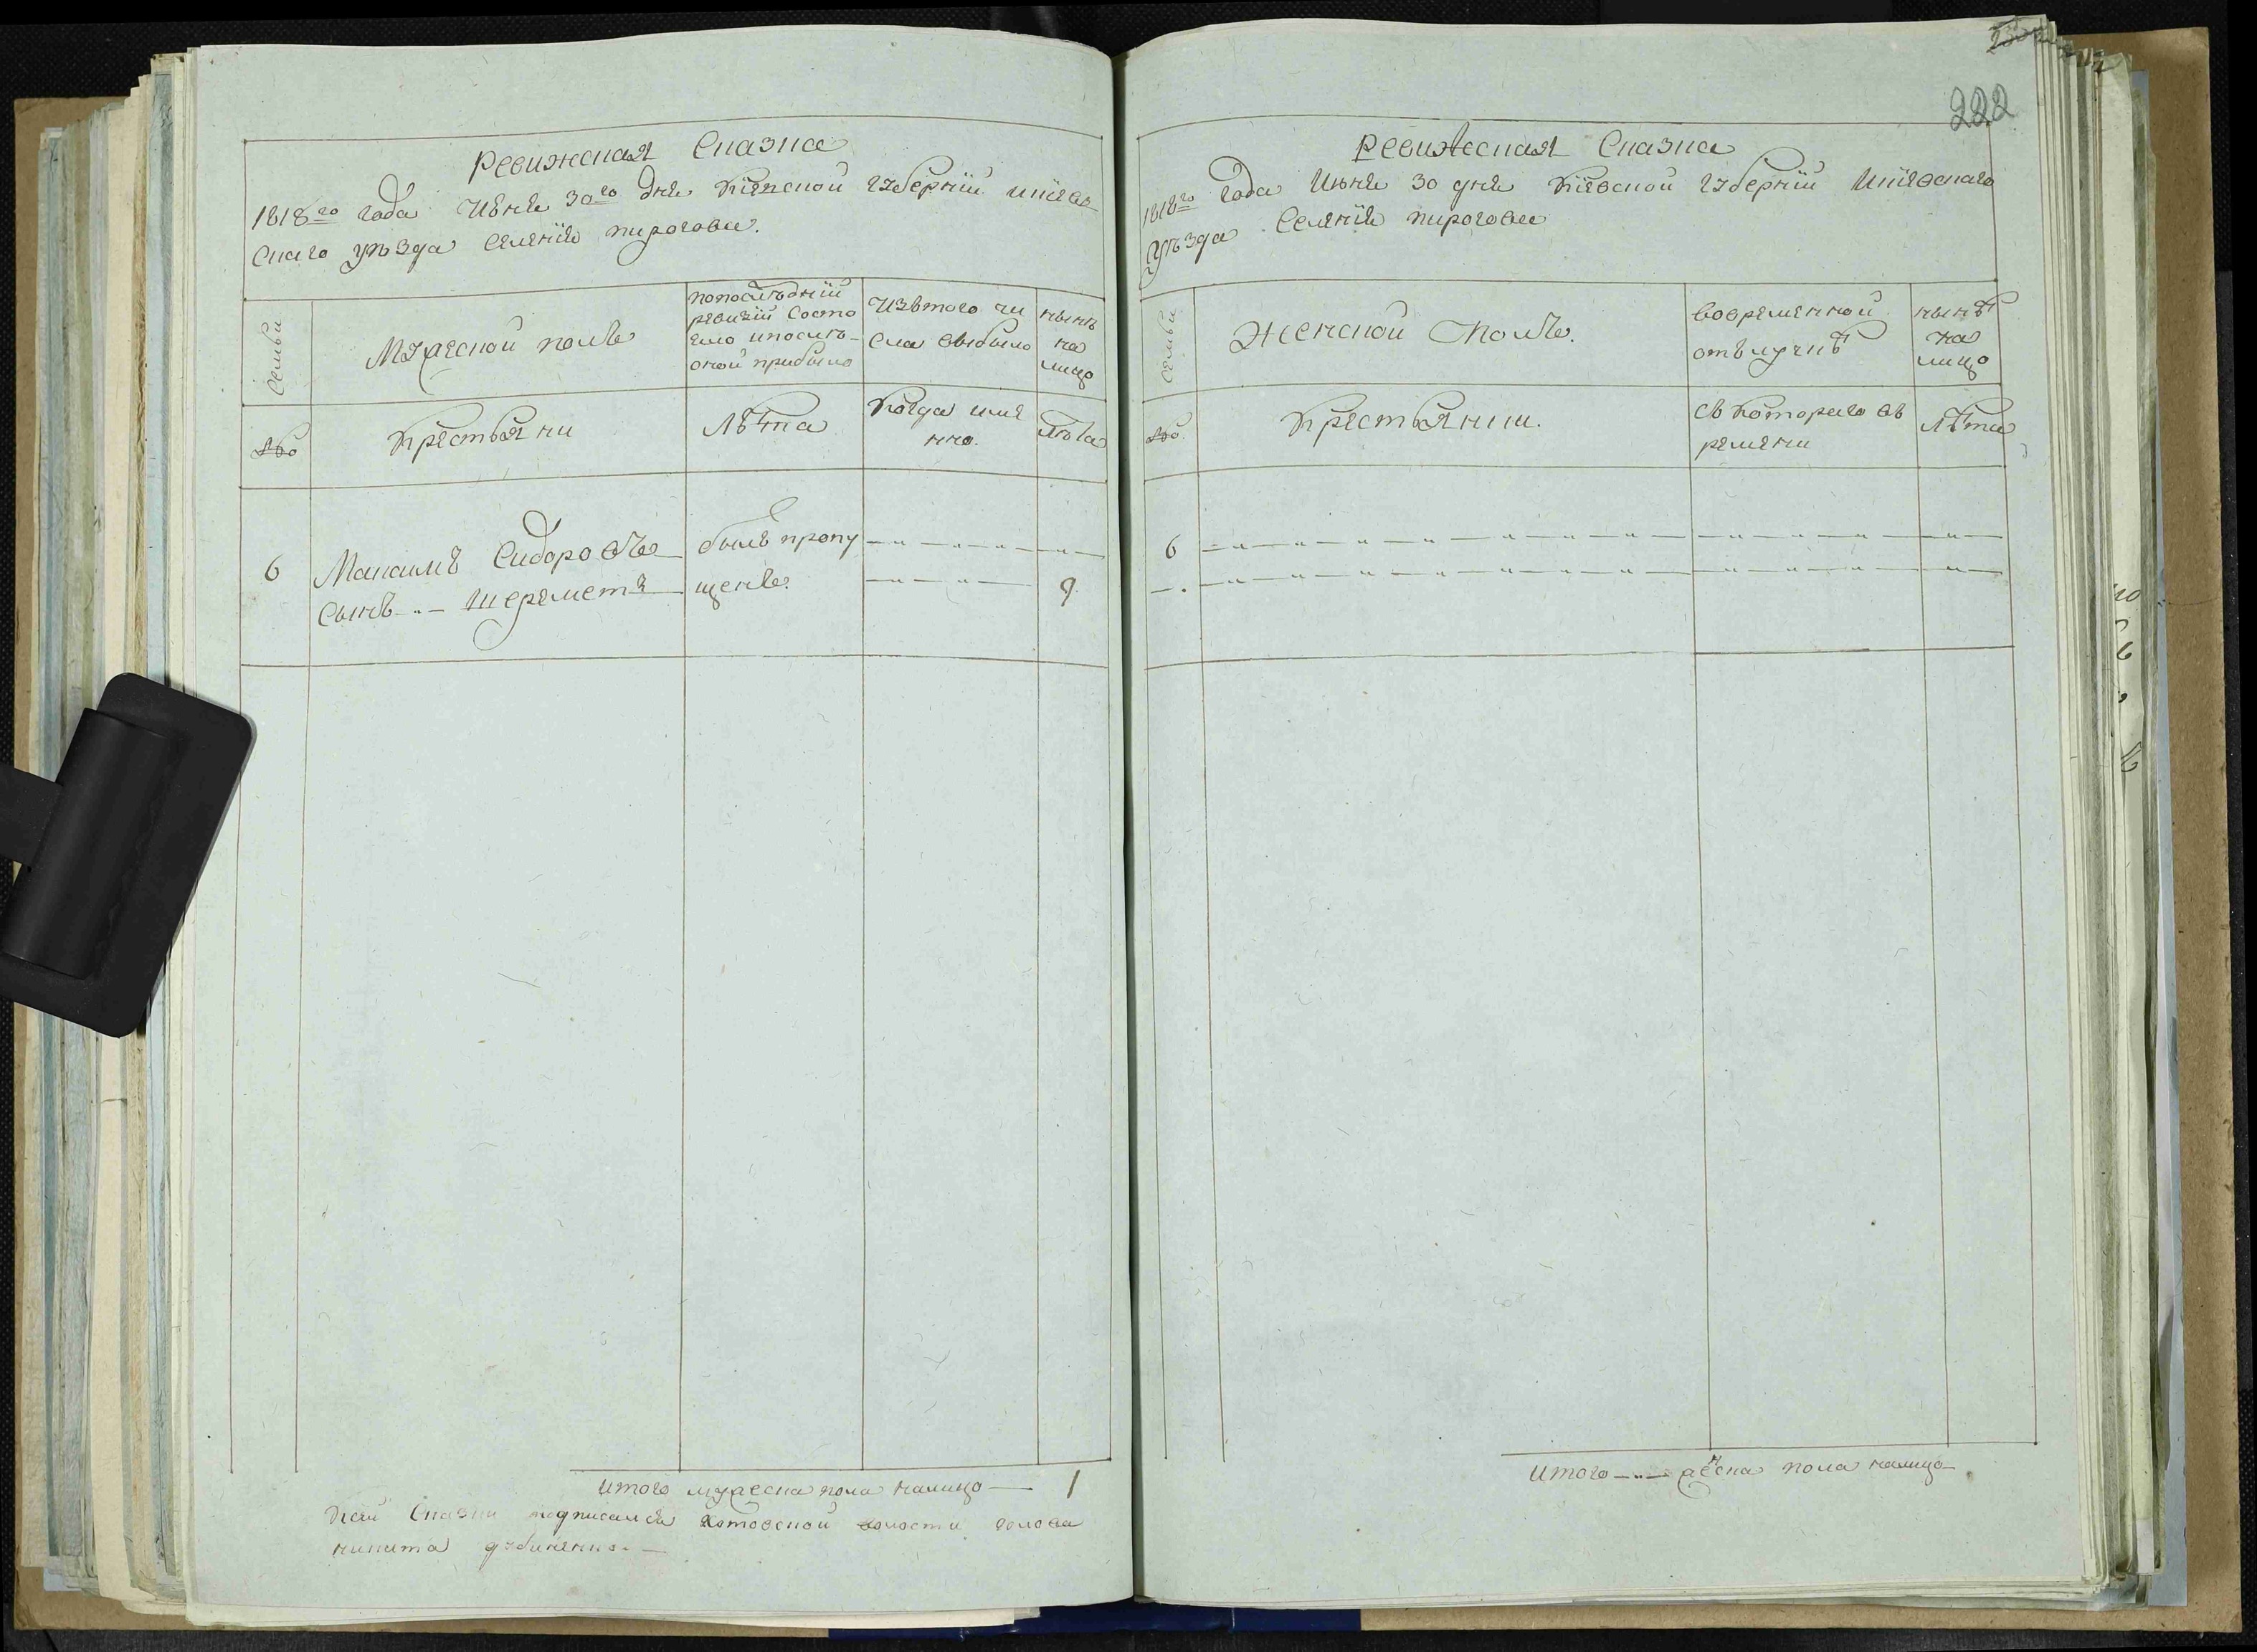 Ревижская Сказка
1818го года Июня 30го дня Кіевской губерніи Кіев-
скаго уѣзда Селенія пирогова.
Семьи
Мужеской полъ
попослѣдній
ревизіи Состо
яло ипослѣ
оной прибыло
Изътого чи
сла выбыло
нынѣ
на
лицо
№
Крестьяни
Лѣта
Когда име
нно.
Лѣта
6
Макаимъ Сидоровъ
былъ пропу
Сынъ Шереметъ
щенъ.
9
итого мужеска пола налицо — 1
Ксей Сказки подписался Хотовской волости голова
никита
222
Ревижеская Сказка
1818го Года Июня 30 дня Кіевской губерніи Кіевскаго
Уѣзда Селенія пирогова
Семьи
Женской Полъ.
Вовременной
отълучкѣ
нынѣ
на
лицо
№
Крестьянки.
Съ котораго въ
ремени
Лѣта
6
итого женска пола налицо